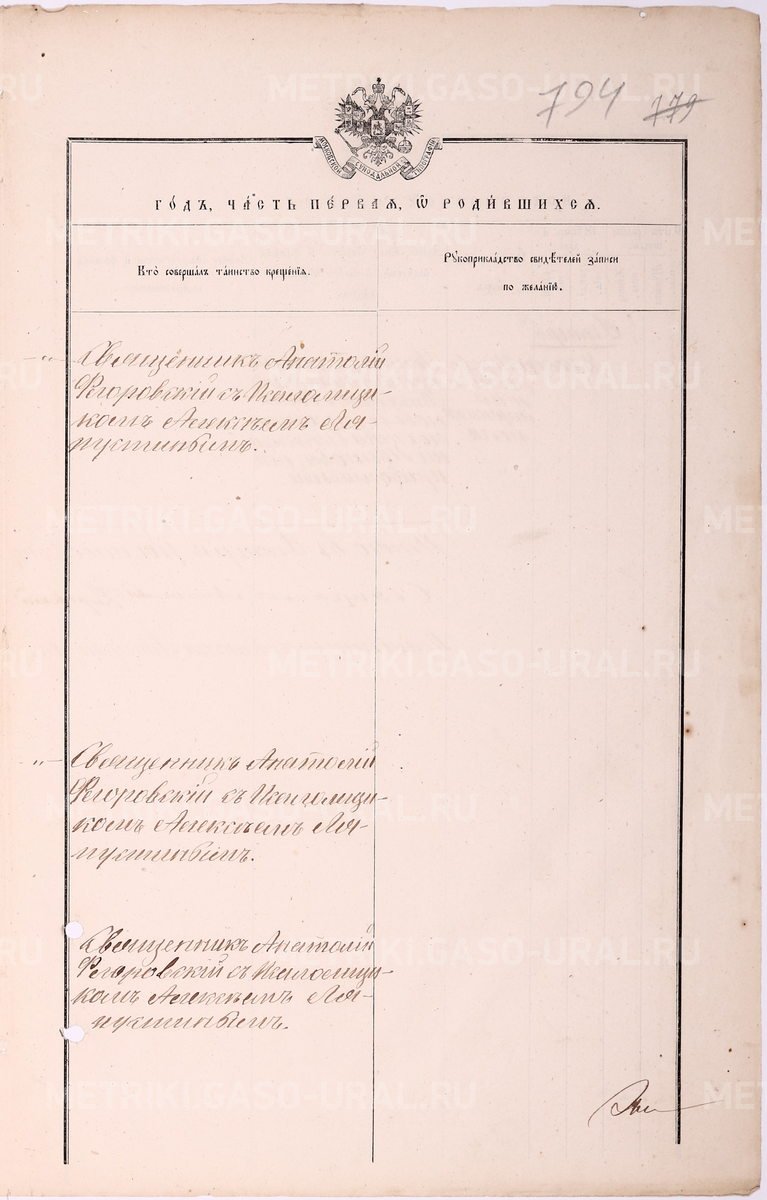 794 779
МОСКОВСКОЙ СѴНОДАЛЬНОЙ ТИПОГРАФІИ
ГО́ДЪ, ЧА́СТЬ ПЕ́РВАЯ, Ѽ РОДИ́ВШИХСЯ.
Кто̀ соверша́лъ та́инство креще́нїя.
Рꙋкоприкла́дство свидѣ́телей за́писи
по жела́нїю.
Священникъ Анатолій
Егоровскій съ Псаломщи-
комъ Алексѣемъ Ля-
пустинымъ.
Священникъ Анатолій
Егоровскій съ Псаломщи-
комъ Алексѣемъ Ля-
пустинымъ.
Священникъ Анатолій
Егоровскій съ Псаломщи-
комъ Алексѣемъ Ля-
пустинымъ.
METRIKI.GASO-URAL.RU